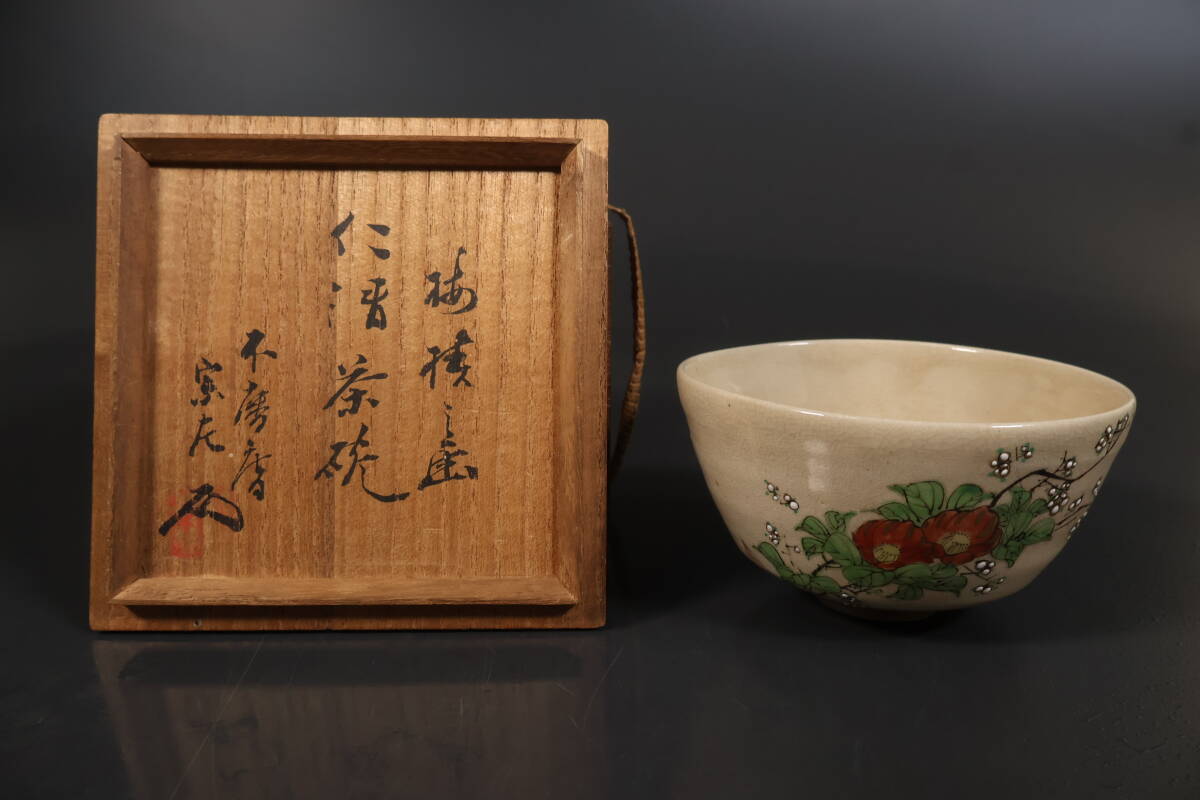 梅椿之画
仁清 茶碗
不審庵
宗左